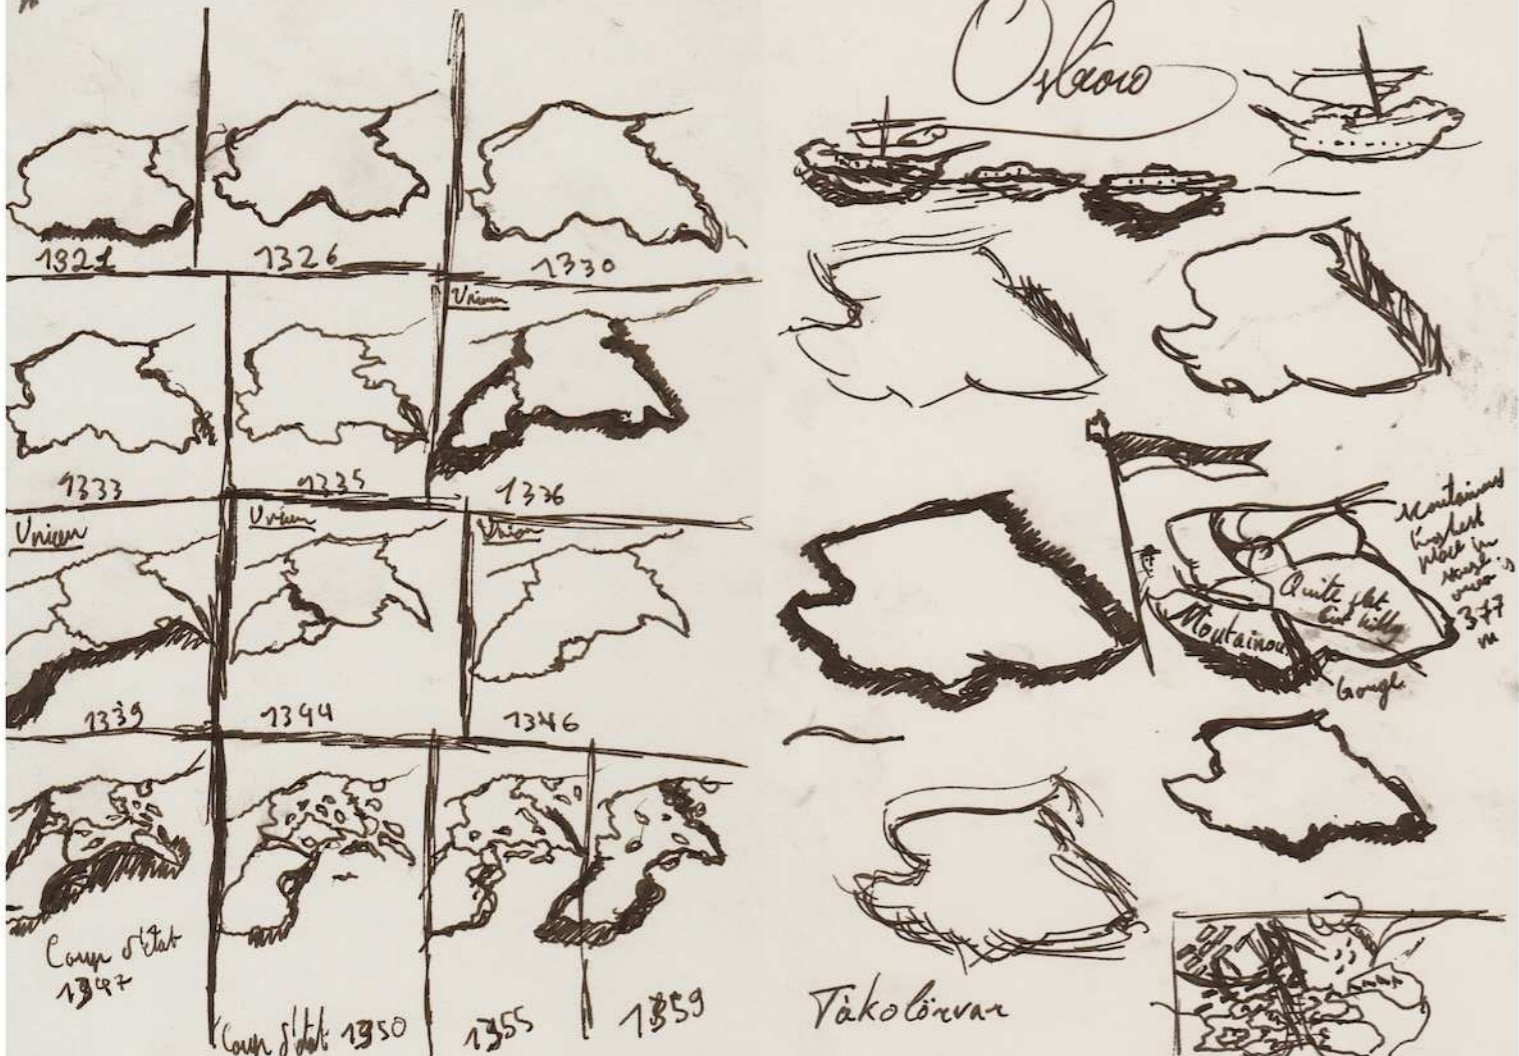 1321
1326
1330
1333
1335
Union
1336
Union
1339
Union
1344
Union
1346
Coup d'état
1347
Coup d'état 1350
1355
1359
Moutainous
highest
place in
is
377
m
Quite flat
but hilly
Moutainou
Gouge
Tàkolörvar